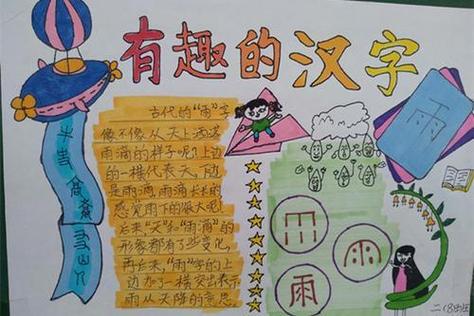 有趣的汉字
古代的"雨"字
像不像从天上洒落
雨滴的样子呢?上边
的一横代表天,下边
是雨滴,雨滴长长的
感觉雨下的很大呢!
后来"天"和"雨滴"的
形象都有了些变化,
再后来,"雨"字的上
边加了一横突出表示
雨从天降的意思
雨
雨
二(8)班